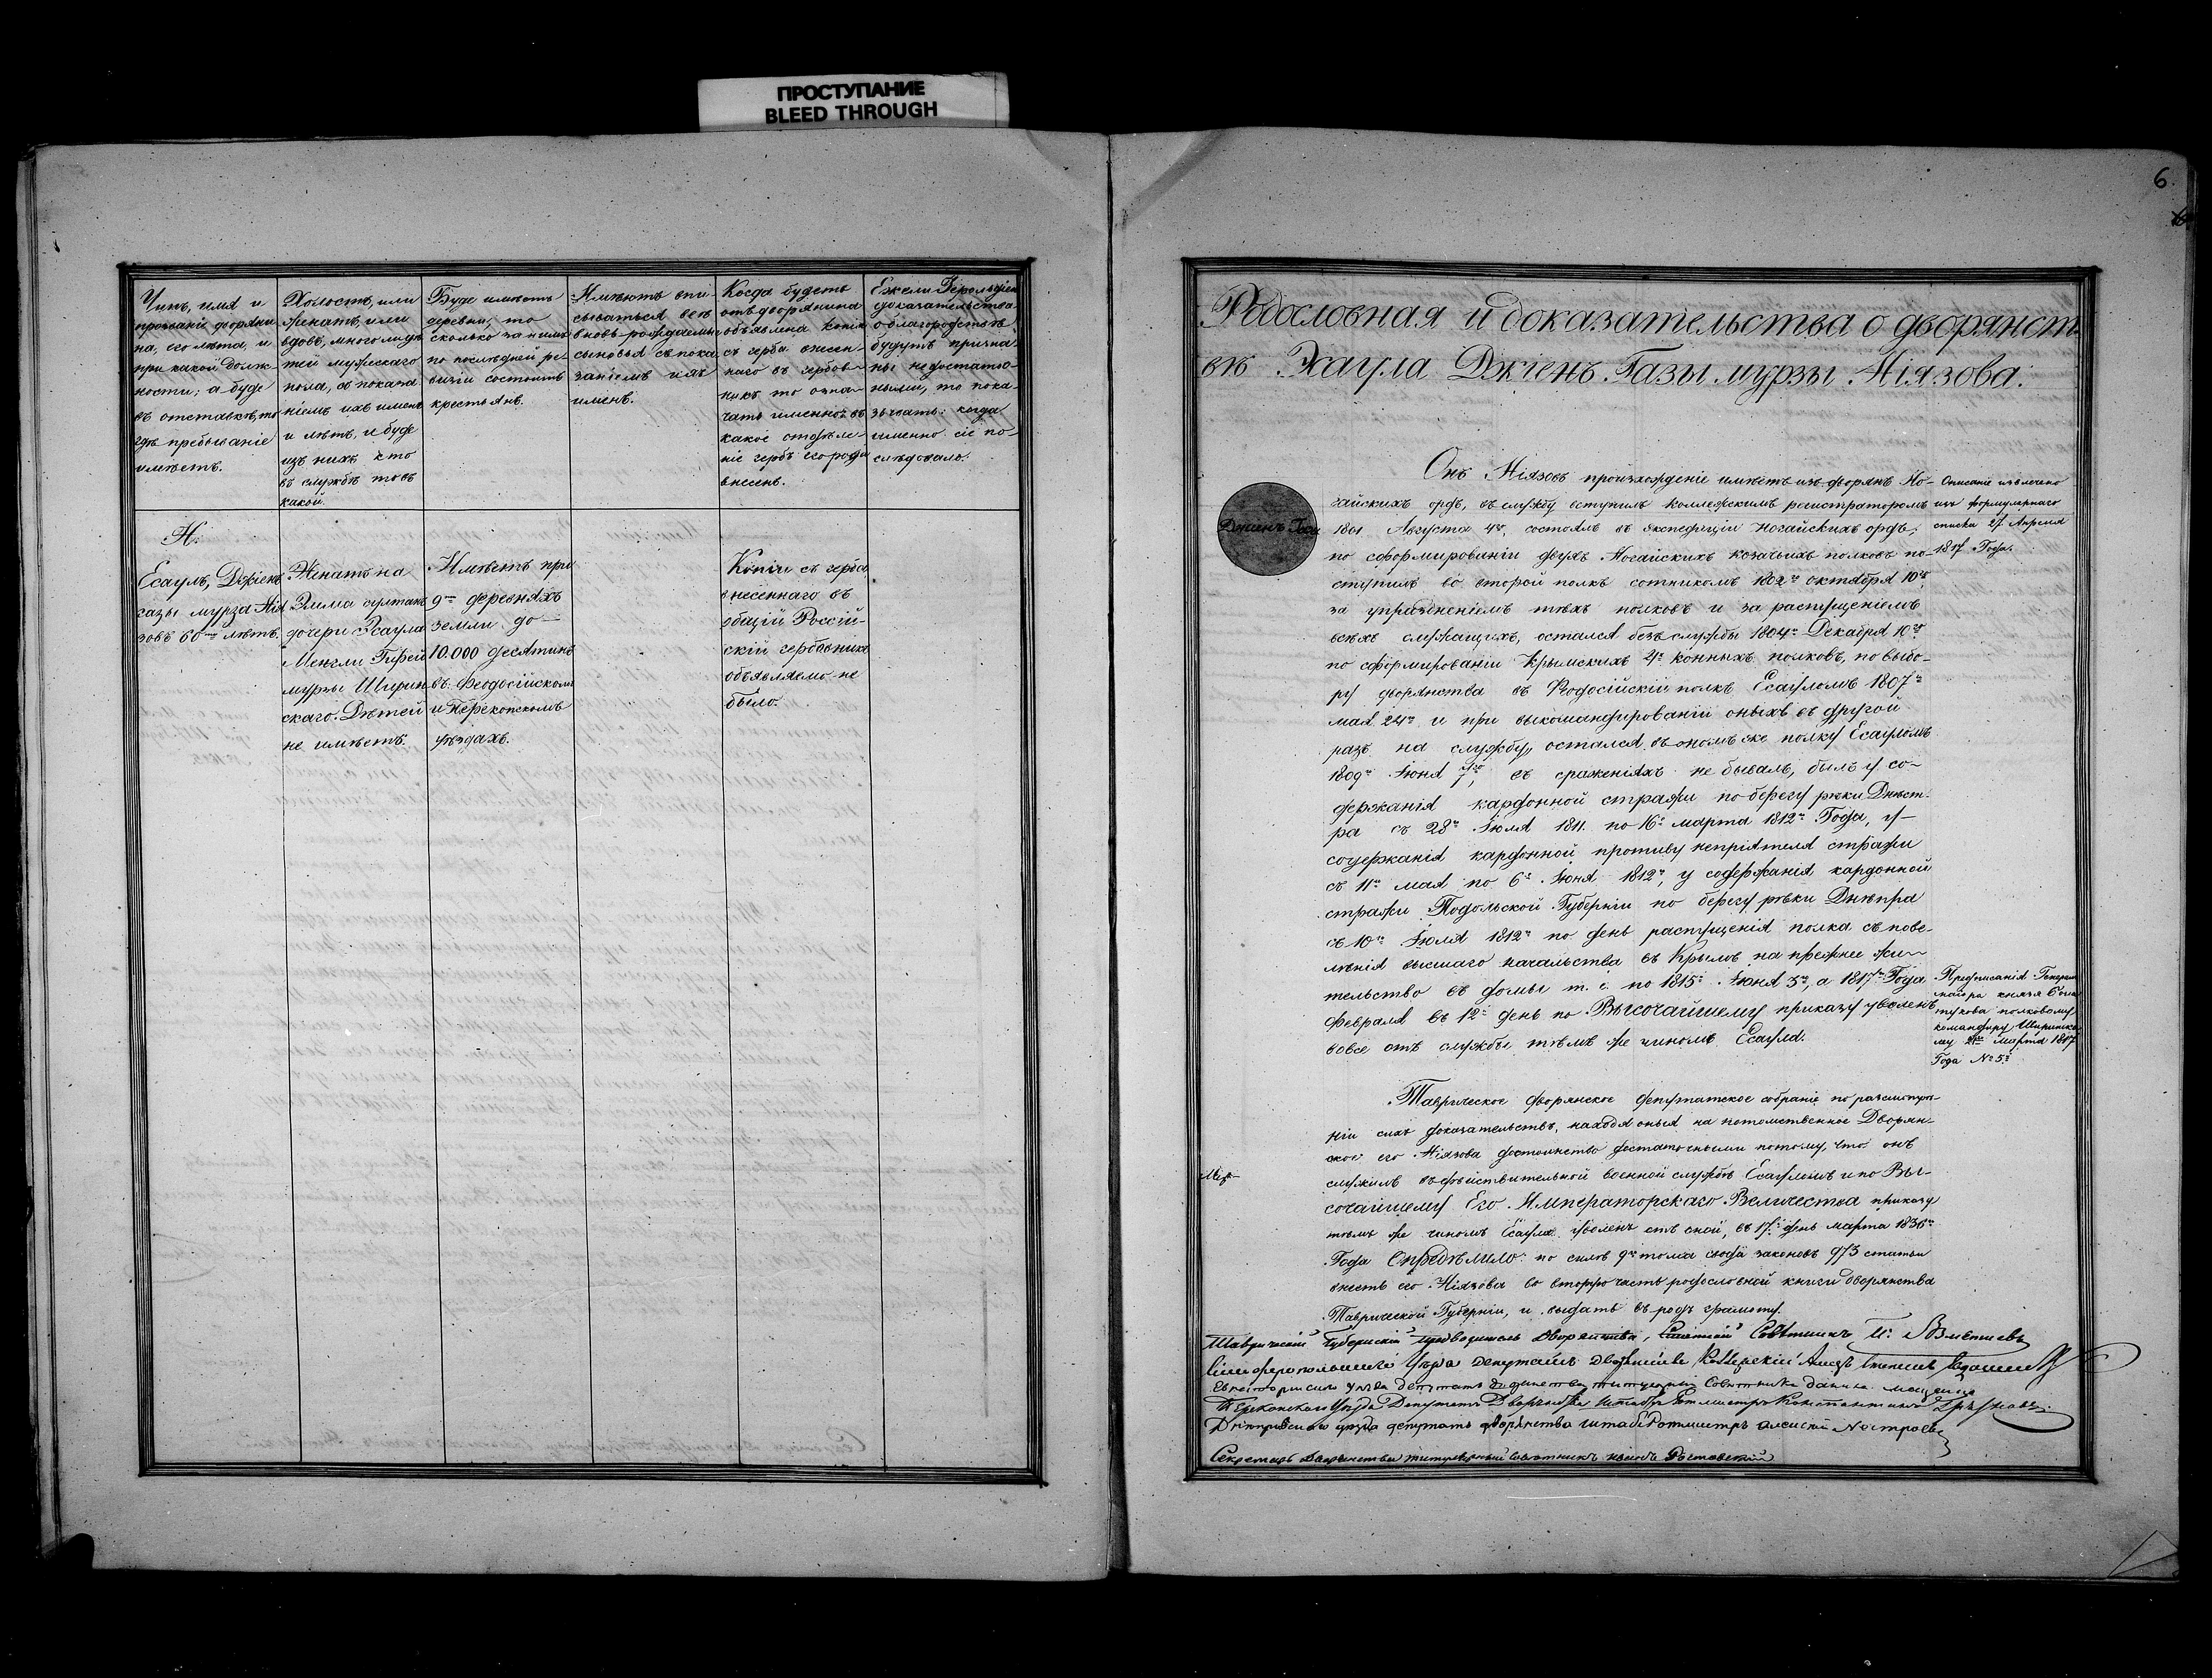 ПРОСТУПАНИЕ
BLEED THROUGH
Чинъ, имя и
прозваніе дворяни-
на, его лѣта, и
при какой долж-
ности; а буде
въ отставкѣ, то
гдѣ пребываніе
имѣетъ.
Холостъ, или
женатъ, или
вдовъ, много ли дѣ-
тей мужескаго
пола, съ показа-
ніемъ ихъ именъ
и лѣтъ, и буде
изъ нихъ кто
въ службѣ то въ
какой.
Буде имѣетъ
деревни, то
сколько за нимъ
по послѣдней ре-
визіи состоитъ
крестьянъ.
Имѣютъ впи-
сываться всѣ
вновь рождаемые
сыновья съ пока-
заніемъ ихъ
именъ.
Когда будетъ
отъ дворянина
объявлена копія
съ герба внесен-
наго въ гербов-
никъ то озна-
чать именно въ
какое отдѣле-
ніе гербъ его рода
внесенъ.
Ежели Герольдіею
доказательства
о благородствѣ
будутъ призна-
ны недостаточ-
ными, то пока-
зывать: когда
именно сіе по-
слѣдовало.
Н.
Есаулъ, Джіенъ
газы мурза Нія
зовъ 60 лѣтъ.
Женатъ на
Элима султанѣ
дочери Эсаула
Менгли Гирей
мурзы Ширин
скаго. Дѣтей
не имѣетъ.
Имѣетъ при
9 деревняхъ
земли до
10.000 десятинъ
въ Феодосійскомъ
и Перекопскомъ
уѣздахъ.
Копіи съ герба
внесеннаго въ
общій Россій-
скій гербовникъ
объявляемо не
было.
6.
Родословная и доказательства о дворянст
вѣ Эсаула Джіенъ Газы мурзы Ніязова.
Джиенъ Газы
Онъ Ніязовъ произхожденіе имѣетъ изъ дворянъ Но-
гайскихъ ордъ, въ службу вступилъ коллежскимъ регистраторомъ
1801 Августа 4го, состоялъ въ экспедиціи ногайскихъ ордъ,
по сформированіи двухъ Ногайскихъ козачьихъ полковъ по-
ступилъ во второй полкъ сотникомъ 1802го октября 10го
за упраздненіемъ тѣхъ полковъ и за распущеніемъ
всѣхъ служащихъ, остался безъ службы 1804го Декабря 10го
по сформированіи Крымскихъ 4хъ конныхъ полковъ, по выбо-
ру дворянства въ Ѳеодосійскій полкъ Есауломъ 1807го
мая 24го и при выкомандированіи оныхъ въ другой
разъ на службу, остался въ ономъ же полку Есауломъ
1809го Іюня 7го, въ сраженіяхъ не бывалъ, былъ у со-
держанія кардонной стражи по берегу рѣки Днѣст-
ра съ 28го Іюля 1811. по 16е марта 1812го Года, у
содержанія кардонной противу непріятеля стражи
съ 11го мая по 6е Іюня 1812го, у содержанія кардонной
стражи Подольской Губерніи по берегу рѣки Днѣпра
съ 10го Іюля 1812го по день распущенія полка съ пове-
лѣнія высшаго начальства въ Крымъ на прежнее жи-
тельство въ домы т. е. по 1815е Іюня 3е, а 1817го Года
Февраля въ 12й день по Высочайшему приказу уволенъ
вовсе отъ службы тѣмъ же чиномъ Есаула.
Описаніе извлечено
изъ формулярнаго
списка 27 Апреля
1817 Года.
Предписанія Генералъ
маіора князя
полковому
командиру Ширинско
му марта 1817
Года № 5й
Таврическое дворянское депутатское собраніе по разсмотре-
ніи сихъ доказательствъ, находя оныя на потомственное Дворян-
ское его Ніязова достоинство достаточными потому, что онъ
служилъ въ дѣйствительной военной службѣ Есауломъ и по Вы-
сочайшему Его Императорскаго Величества приказу
тѣмъ же чиномъ Есаула уволенъ отъ оной, въ 17й день марта 1836го
Года Опредѣлило: по силѣ 9го тома свода законовъ 973 статьи
внесть его Ніязова во вторую часть родословной книги дворянства
Таврической Губерніи, и выдать въ родъ грамоту.
Таврическій Губернскій предводитель Дворянства, Совѣтникъ
Симферопольскаго Уѣзда Депутатъ Дворянства
Евпаторійскаго уѣзда депутатъ дворянства титулярный Совѣтникъ
Перекопскаго Уѣзда Депутатъ Дворянства Штабсъ Ротмистръ Константинъ
Днѣпровскаго уѣзда депутатъ дворянства штабсъ Ротмистръ Алексѣй
Секретарь Дворянства титулярный совѣтникъ